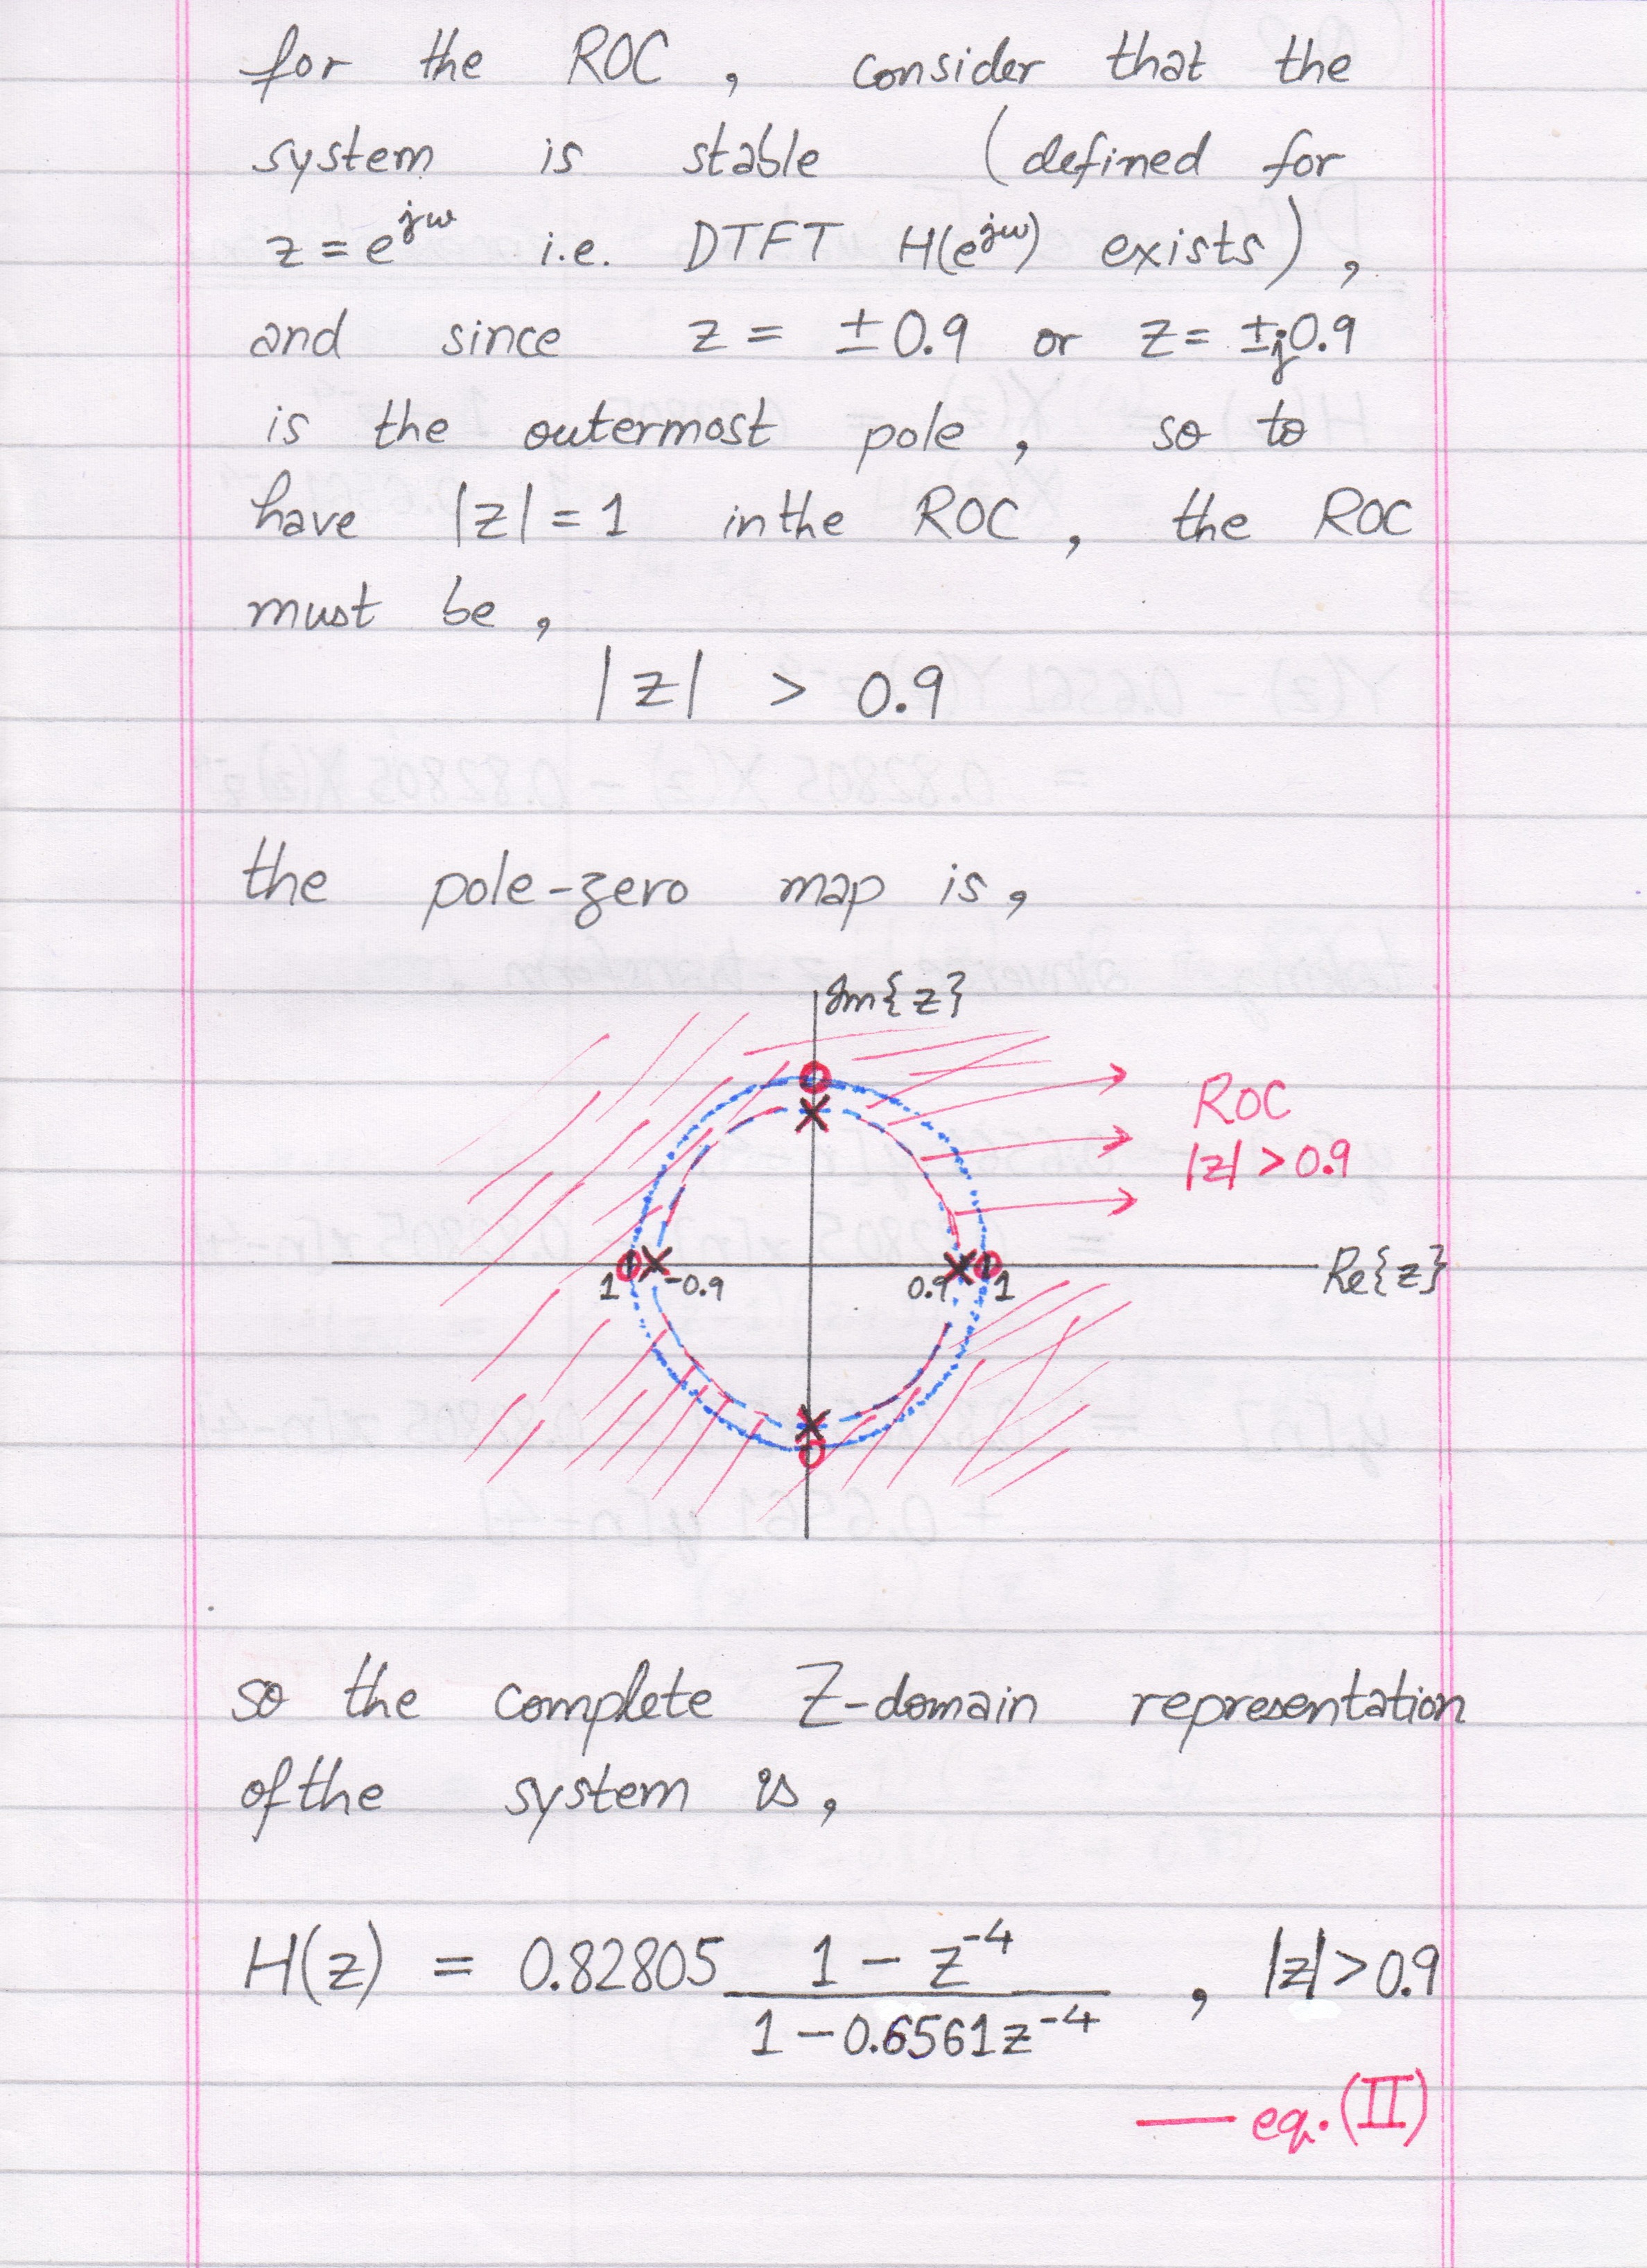 for the ROC , consider that the
system is stable (defined for
z = e^{jω} i.e. DTFT H(e^{jω}) exists) ,
and since z = ±0.9 or z = ±j0.9
is the outermost pole , so to
have |z| = 1 in the ROC , the ROC
must be ,
|z| > 0.9
the pole-zero map is ,
Im{z}
ROC
|z| > 0.9
1 -0.9 0.9 1 Re{z}
so the complete Z-domain representation
of the system is ,
H(z) = 0.82805 \frac{1 - z^{-4}}{1 - 0.6561z^{-4}} , |z| > 0.9
— eq. (II)